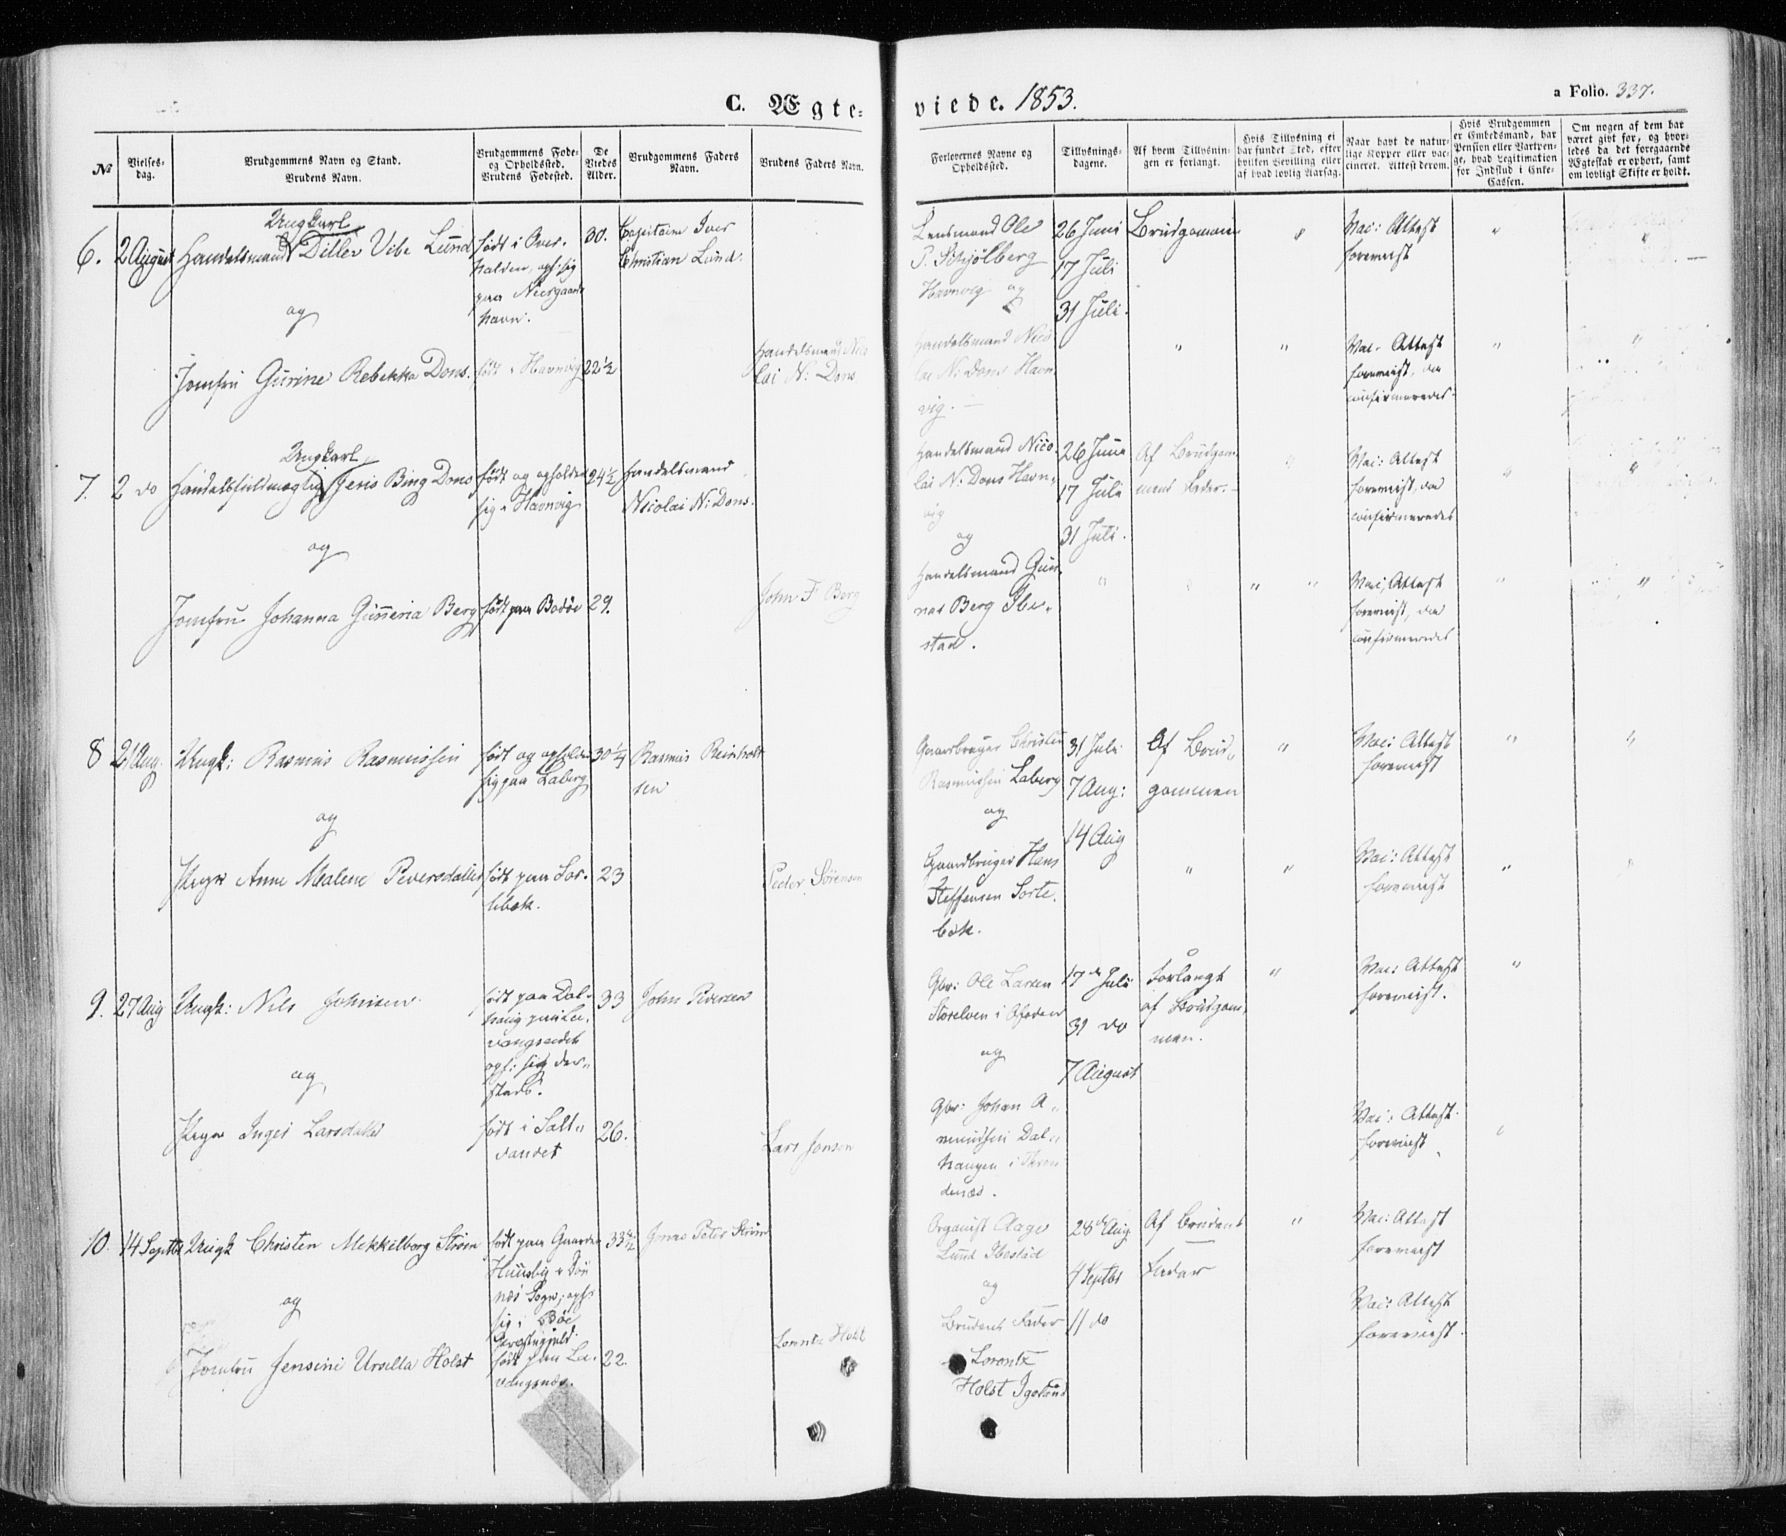 C. Ægte-viede. 1853. a Folio. 337.
№
Vielses-dag.
Brudgommens Navn og Stand.
Brudens Navn.
Brudgommens Føde- og Opholdssted.
Brudens Fødested.
De Viedes Alder.
Brudgommens Faders Navn.
Brudens Faders Navn.
Forlovernes Navne og Opholdssted.
Tillysnings-dagene.
Af hvem Tillysnin-gen er forlangt.
Hvis Tillysning ei har fundet Sted, efter hvilken Bevilling eller af hvad lovlig Aarsag.
Naar havt de natur-lige Kopper eller vac-cineret. Attest derom.
Hvis Brudgommen er Embedsmand, har Pension eller Vartpen-ge, hvad Legitimation for Indskud i Enke-Cassen.
Om nogen af dem har været gift før, og hvor-ledes da det foregaaende Ægteskab er ophørt, samt om lovligt Skifte er holdt.
6. 2 August
Ungkarl
Handelsmand Ditlev Vibe Lund
født i Over-
halden, oph: sig
paa Neesgaards
havn.
30.
Capitain Iver
Christian Lund.
Lensmand Ole
P. Schjølberg
Havnvig og
26 Juni
17 Juli
31 Juli.
Brudgommen
Vac: Attest
foreviist
og
Jomfru Gurine Rebekka Dons.
født i Havnvig
22½
Handelsmand Nico
lai N: Dons
Handelsmand Nico
lai N: Dons Havn
vig.
"
"
Vac. Attest
foreviist, da
confirmeredes
7. 2 do
Ungkarl
Handelsfuldmægtig Jens Bing Dons
født og opholder
sig i Havnvig
24½
Handelsmand
Nicolai N: Dons.
Handelsmand Nico
lai N: Dons Havn-
vig
og
26 Juni
17 Juli
31 Juli.
Af Brudgom
mens Fader.
Vac: Attest
foreviist, da
confirmeredes
og
Jomfru Johanna Gunneria Berg
født paa Bodøe
29.
John F Berg
Handelsmand Gun
nar Berg Ibe-
stad.
Vac; Attest
foreviist, da
confirmeredes
8 21 Aug.
Ungk: Rasmus Rasmussen
født og opholder
sig paa Laberg
30¼
Rasmus Reinholt
sen
Gaardbruger Christen
Rasmussen Laberg
og
31 Juli
7 Aug:
14 Aug
Af Brud-
gommen
Vac: Attest
foreviist
og
Pige Anne Malene Pedersdatter
født paa Sor-
tebek.
23
Peder Sørensen
Gaardbruger Hans
Steffensen Sorte
bek.
Vac: Attest
foreviist
9. 27 Aug
Ungk: Nils Johnsen
født paa Dal-
haug
oph: sig der-
steds.
33
John Pedersen
Gbr: Ole Larsen
Storelven i Ofoden
og
17de Juli
31 do
7 August
Forlangt
af Brudgom-
men.
Vac: Attest
foreviist.
og
Pige Inger Larsdatter
født i Salt-
vandet
26.
Lars Jonsen
Gbr: Johan A-
mundsen Dal-
haugen i Tron
denæs.
Vac: Attest
foreviist
10. 14 Septbr
Ungk Christen Mekkelborg Strøm
født paa Gaarden
Huusby i Dön
næs Sogn, oph:
sig i Bøe
Præstegjeld.
33½
Jonas Peter Strøm
Organist Aage
Lund Ibestad
og
28de Aug
4 Septbr
11 do
Af Brudens
Fader
Vac: Attest
foreviist
og
Jomfru Jensine Ursilla Holst
født paa La-
vangsnæs.
22.
Lorentz Holst
Brudens Fader
Lorentz
Holst Igesund
Vac: Attest
foreviist.